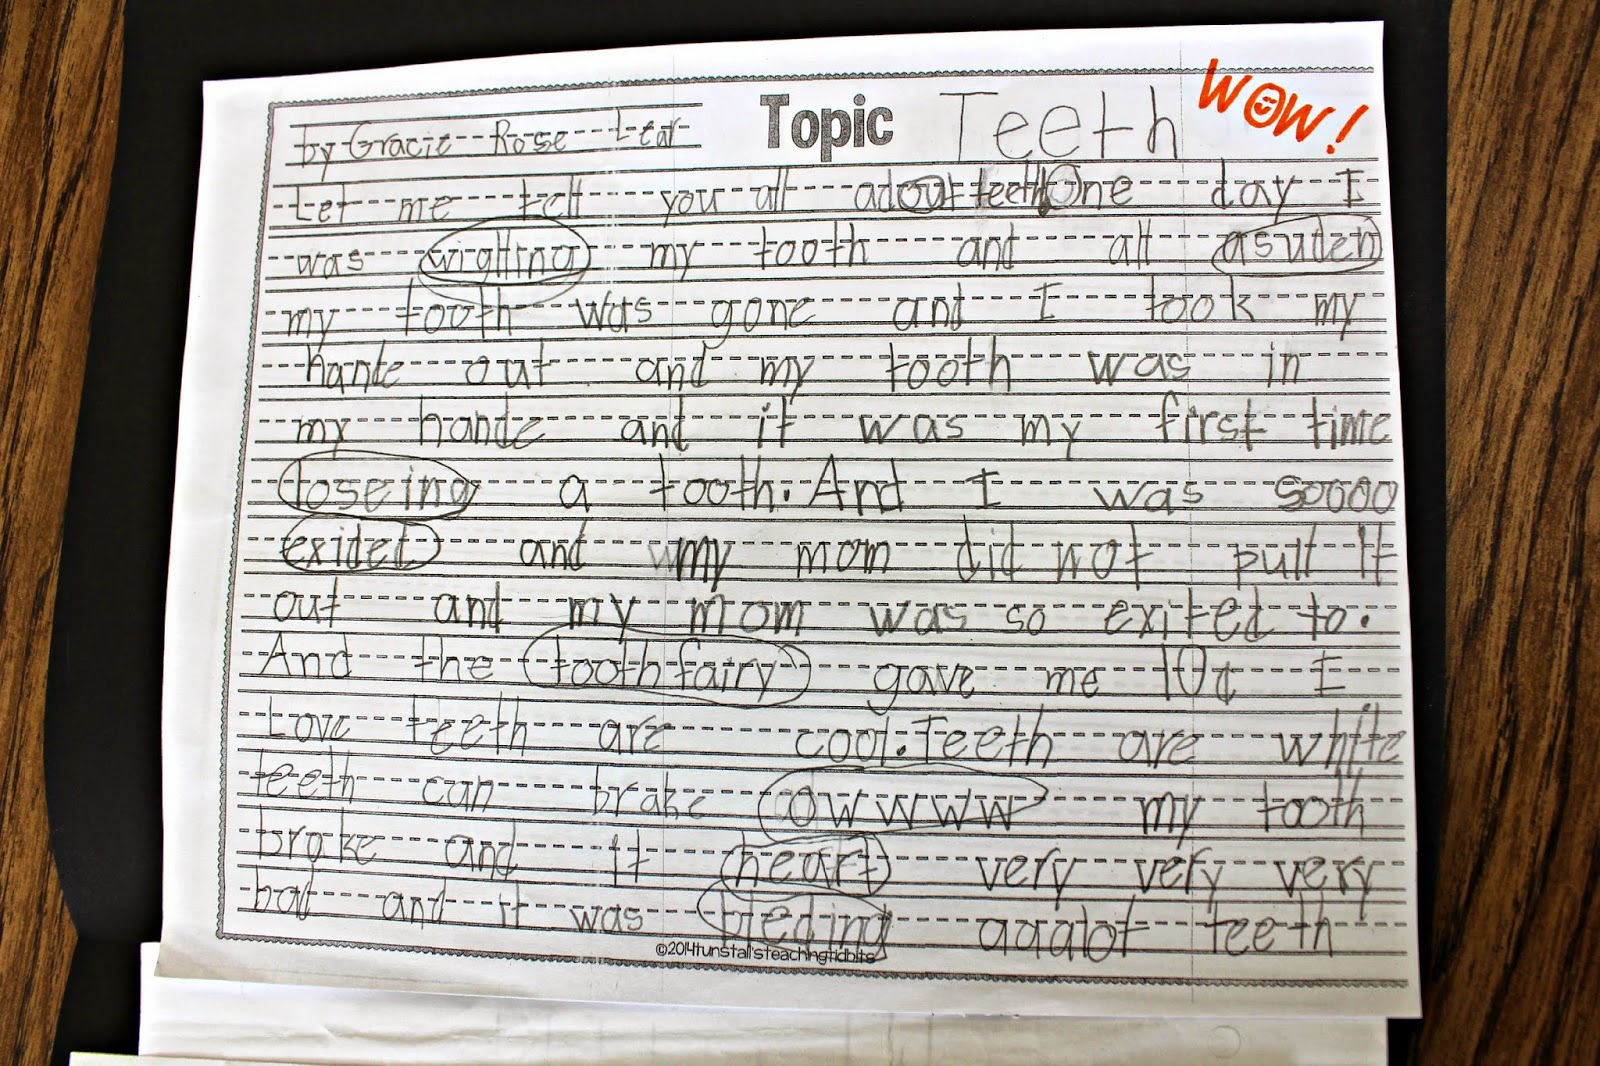 by Gracie Rose Lear
Topic Teeth
WOW!
Let me tell you all adout teeth One day I
was wiglling my tooth and all asuden
my tooth was gone and I took my
hande out and my tooth was in
my hande and it was my first time
loseing a tooth. And I was soooo
exidet and my mom did not pull it
out and my mom was so exited to.
And the tooth fairy gave me 10¢ I
Love teeth are cool. Teeth are white
teeth can brake owwww my tooth
brake and it heart very very very
bad and it was bleding aaalot teeth
©2014tunstall'steachingtidbits